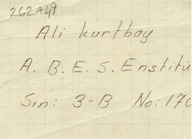 262A49
Ali kurtbay
A. B. E. S. Enstitü
Sın: 3-B No: 170